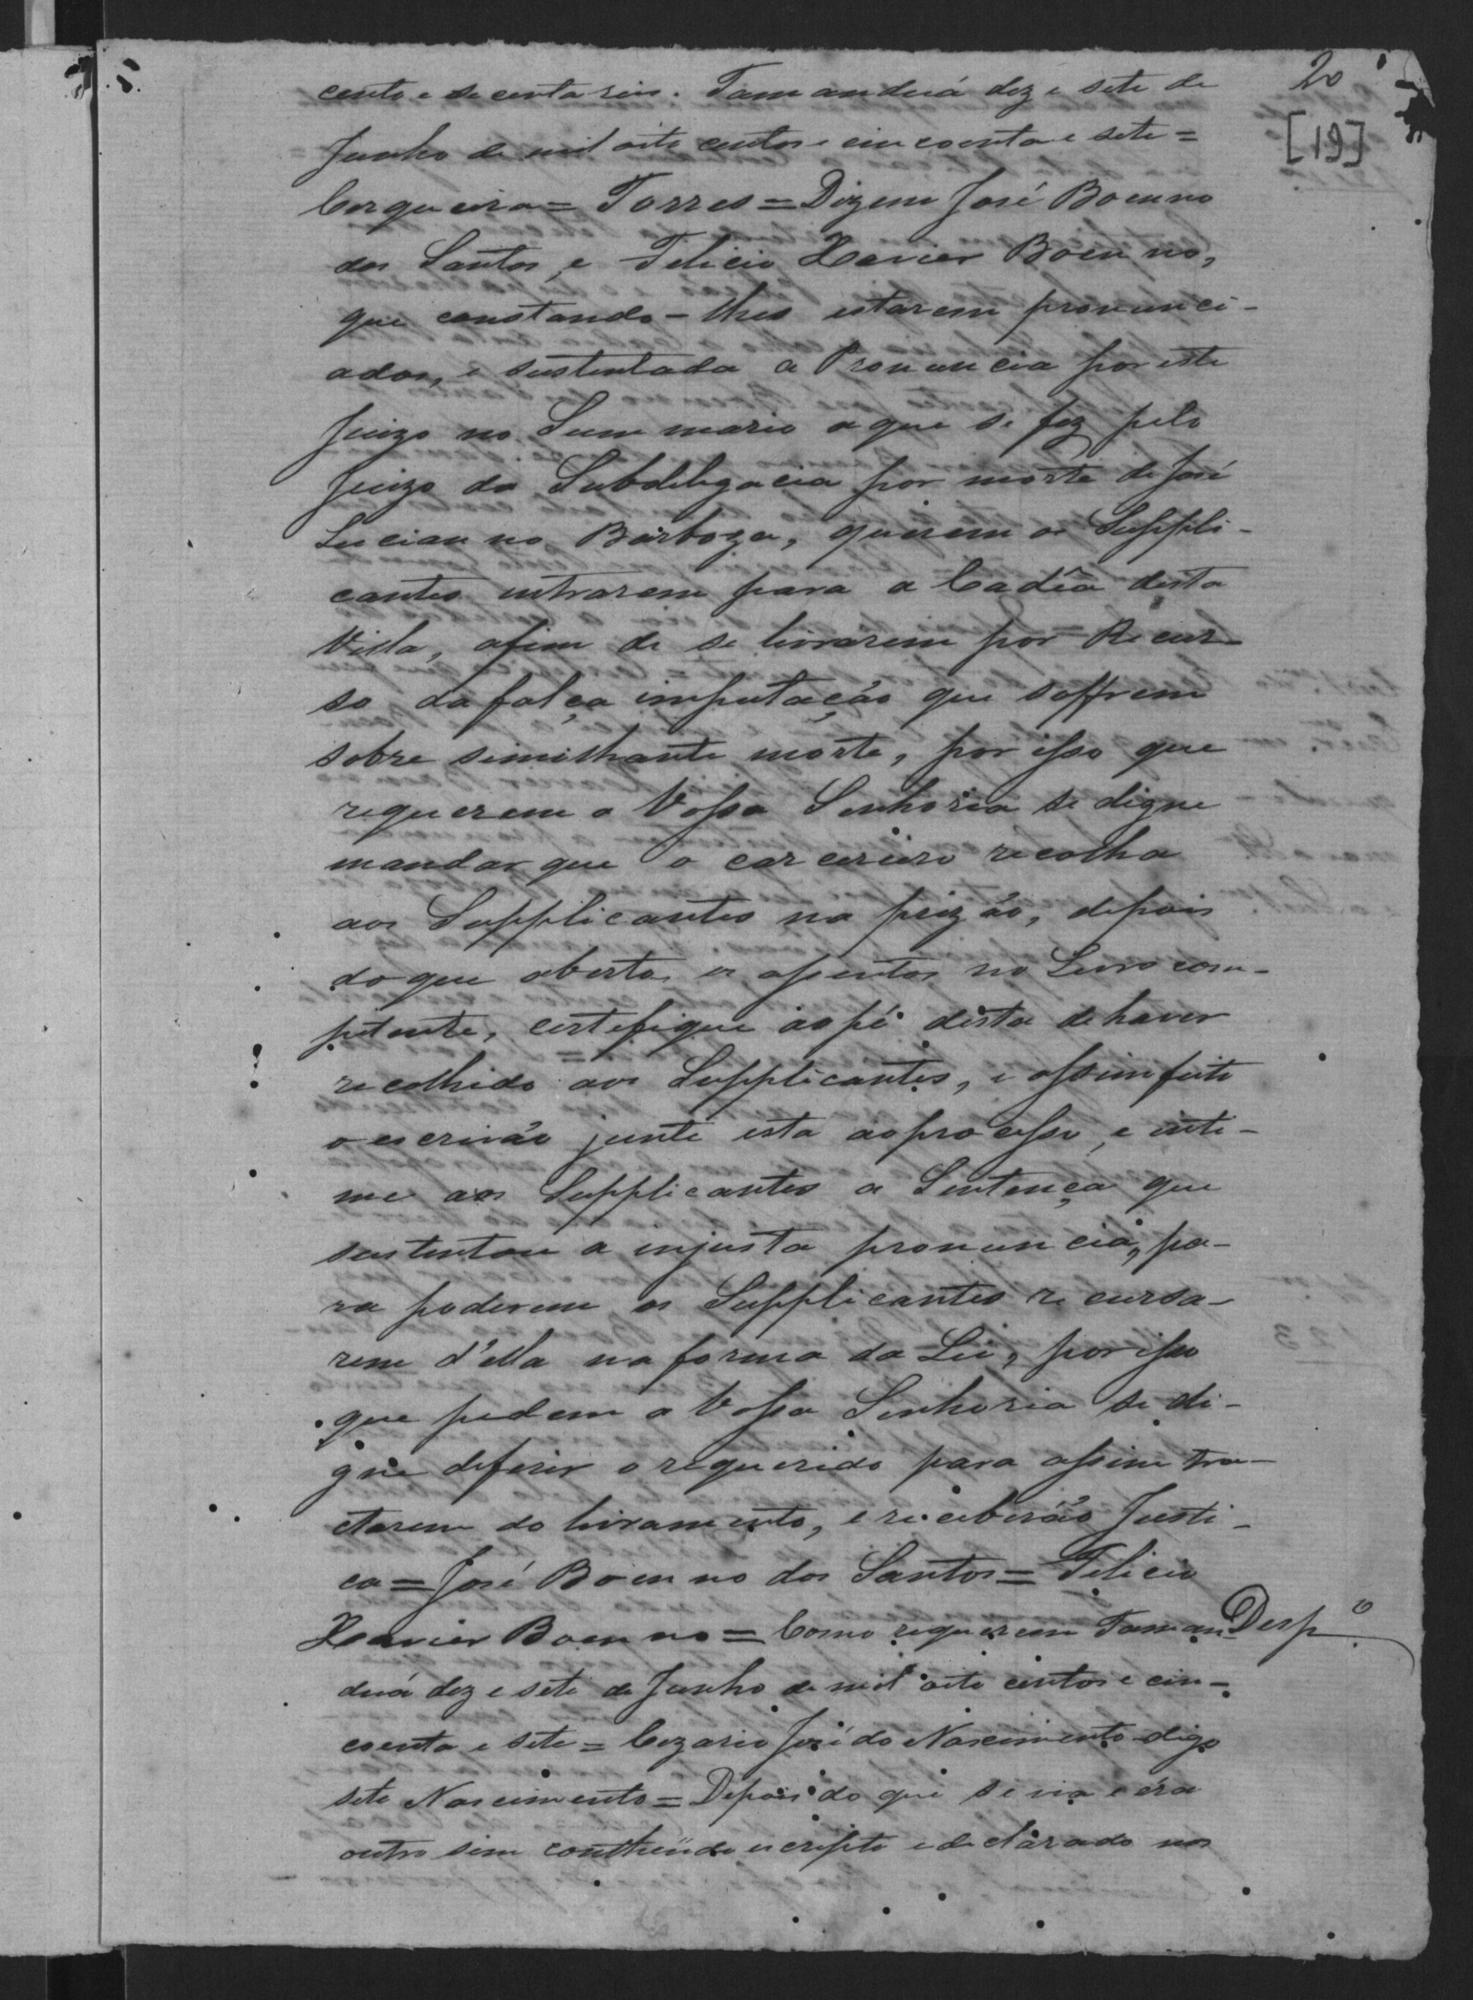 20
[19]
cento e secenta reis. Tamanduá dez e sete de
Junho de mil oito centos e cincoenta e sete =
Cerqueira = Torres = Dizem José Boenno
dos Santos, e Felicio Xavier Boenno,
que constando-lhes estarem pronunci-
ados, e sustentada a Pronuncia por este
Juizo no Summario a que se fez pelo
Juizo da Subdelegacia por morte de José
Lucianno Barboza, querem os Suppli-
cantes entrarem para a Cadêa desta
Villa, afim de se livrarem por Recur-
so da falça imputação que soffrem
sobre similhante morte, por isso que
requerem a Vossa Senhoria se digne
mandar que o carcereiro recolha
aos Supplicantes na prizão, depois
do que abertos os assentos no Livro com-
petente, certefique ao pé desta de haver
recolhido aos Supplicantes, e assim feito
o escrivão junte esta ao processo, e inti-
me aos Supplicantes a Sentença que
sustentou a injusta pronuncia, pa-
ra poderem os Supplicantes recursa-
rem d'ella na forma da Lei, por isso
que pedem a Vossa Senhoria se di-
gne deferir o requerido para assim tra-
ctarem do livramento, e receberão Justi-
ca = José Boenno dos Santos = Felicio
Xavier Boenno = Como requerem Taman
Desp.º
duá dez e sete de Junho de mil oito centos e cin-
coenta e sete = Cezario José do Nascimento digo
sete Nascimento = Depois do que se via e éra
outro sim contheúdo escripto e declarado nos